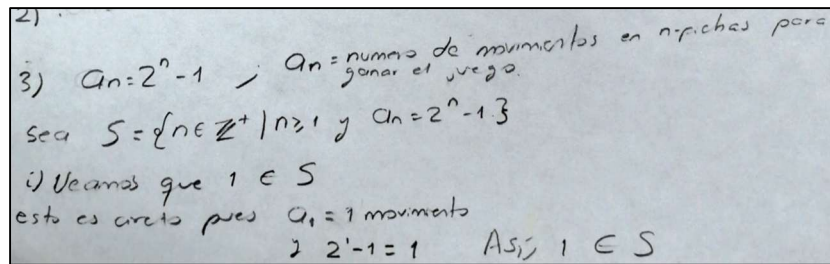 2)
3) aₙ = 2ⁿ - 1 , aₙ = numero de movimientos en n-fichas para
ganar el juego.
sea S = {n ∈ ℤ⁺ | n ≥ 1 y aₙ = 2ⁿ - 1.}
i) Veamos que 1 ∈ S
esto es cierto pues a₁ = 1 movimiento
y 2¹ - 1 = 1 Así, 1 ∈ S